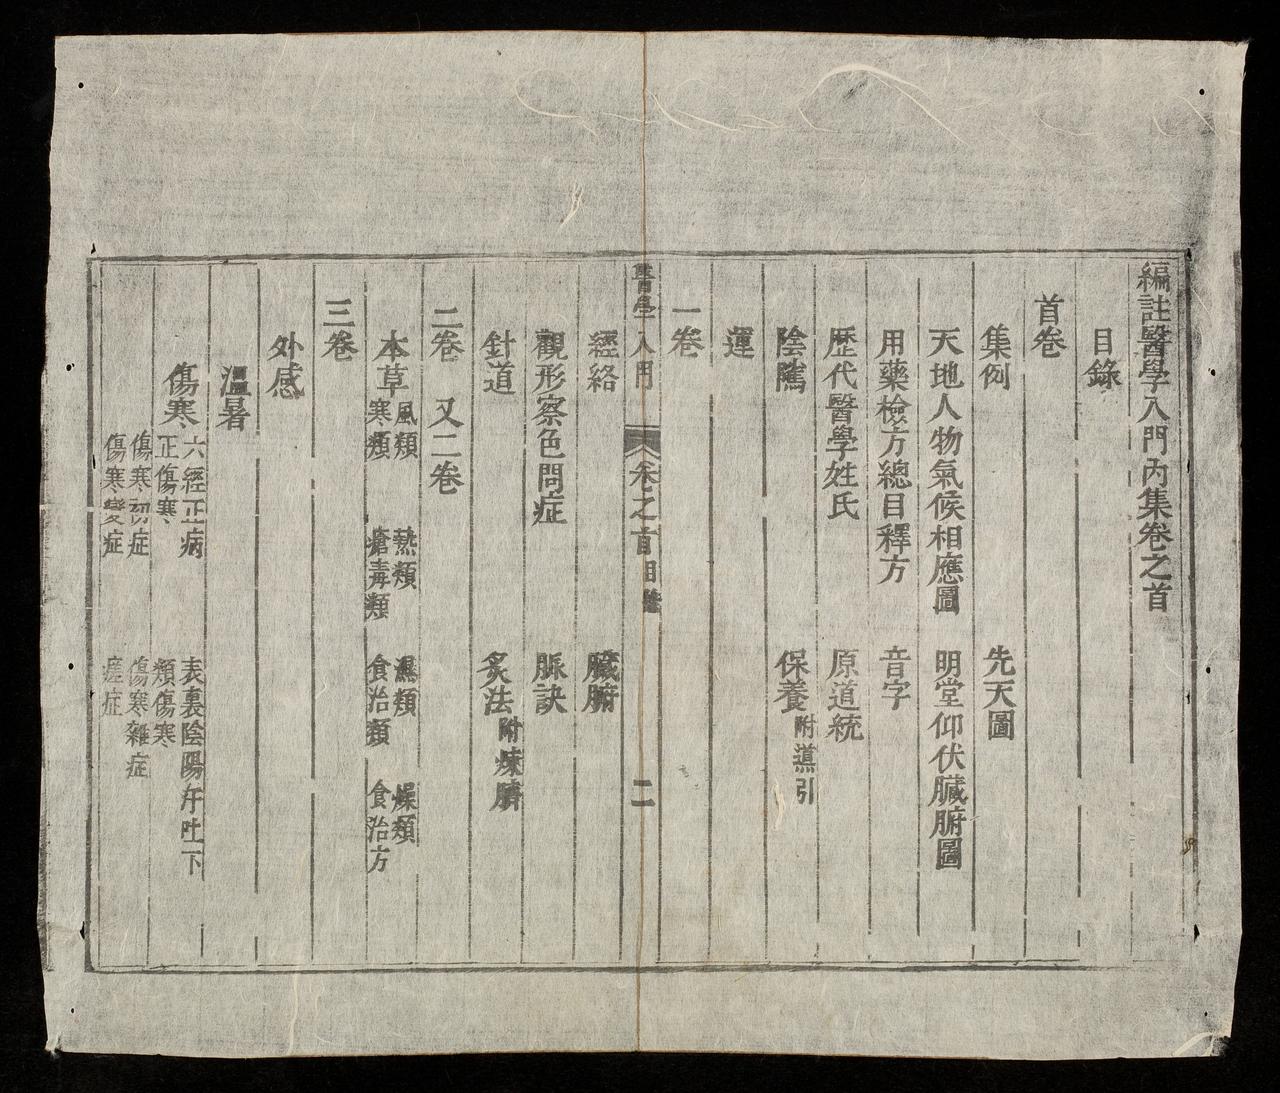 編註醫學入門內集卷之首
目錄
首卷
集例 先天圖
天地人物氣候相應圖 明堂仰伏臟腑圖
用藥檢方總目釋方 音字
歷代醫學姓氏 原道統
陰隲 保養附導引
運
一卷
醫學入門 卷之首目 二
經絡 臟腑
觀形察色問症 脈訣
針道 炙法附煉臍
二卷 又二卷
本草風類 熱類 濕類 燥類
寒類 瘡毒類 食治類 食治方
三卷
外感
溫暑
傷寒六經正病 表裏陰陽汗吐下
正傷寒 類傷寒
傷寒初症 傷寒雜症
傷寒變症 瘥症